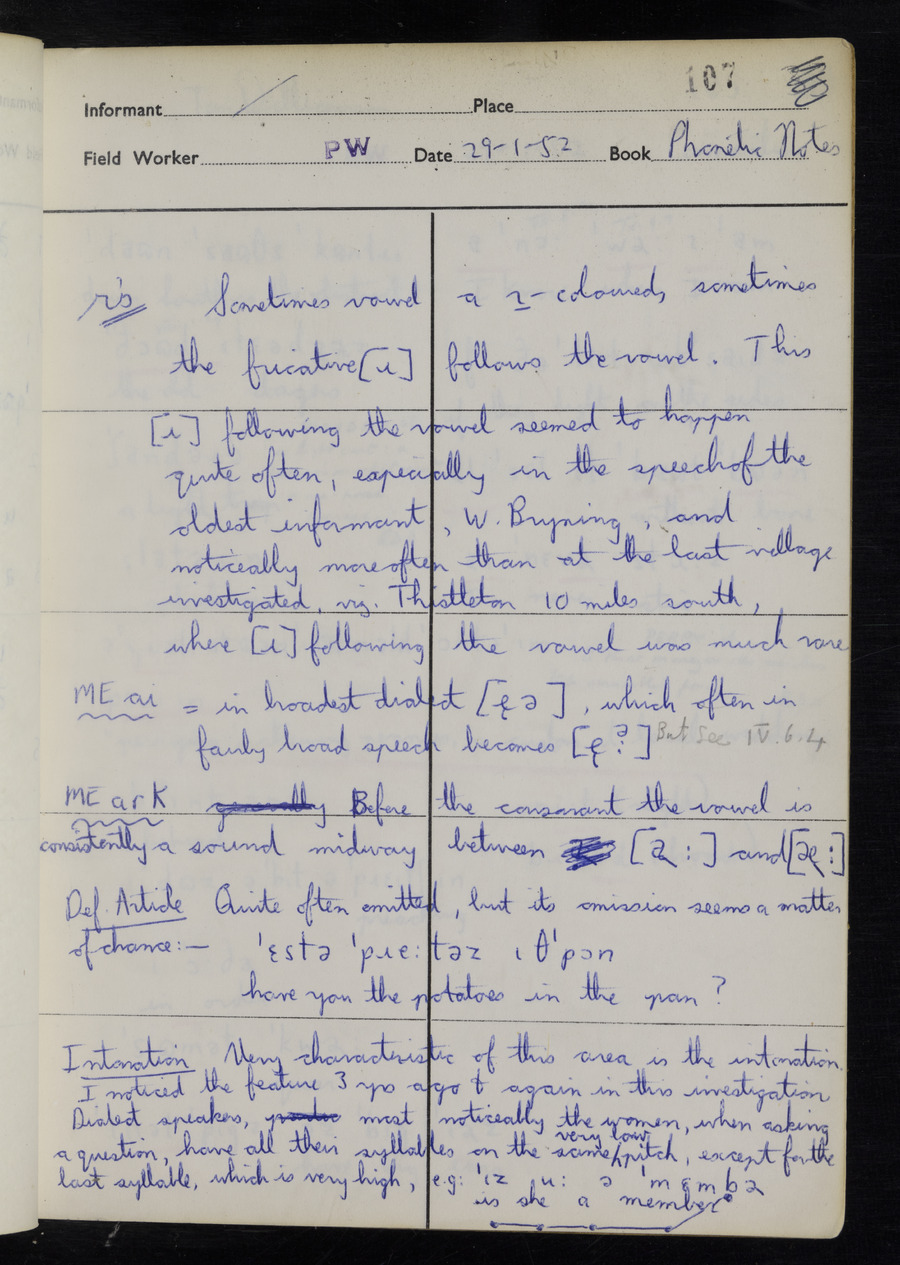 107
Informant Place
Field Worker PW Date 29-1-52 Book Phonetic Notes
r's Sometimes vowel a ɹ-coloured, sometimes
the fricative [ɹ] follows the vowel. This
[ɹ] following the vowel seemed to happen
quite often, especially in the speech of the
oldest informant, W. Bryning, and
noticeably more often than at the last village
investigated, viz. Thistleton 10 miles south,
where [ɹ] following the vowel was much rarer
ME ai = in broadest dialect [ę ə], which often in
fairly broad speech becomes [ę ?] But See IV.6.4
ME ark Before the consonant the vowel is
consistently a sound midway between [a̢ :] and [æ̢ :]
Def. Article Quite often omitted, but its omission seems a matter
of chance:— 'ɛstə 'pɹe:təz ɩ θ'pɔn
have you the potatoes in the pan?
Intonation Very characteristic of this area is the intonation.
I noticed the feature 3 yrs ago & again in this investigation
Dialect speakers, most noticeably the women, when asking
a question, have all their syllables on the same very low pitch, except for the
last syllable, which is very high, e.g: 'ɩz u: ə 'mɛmbə
is she a member